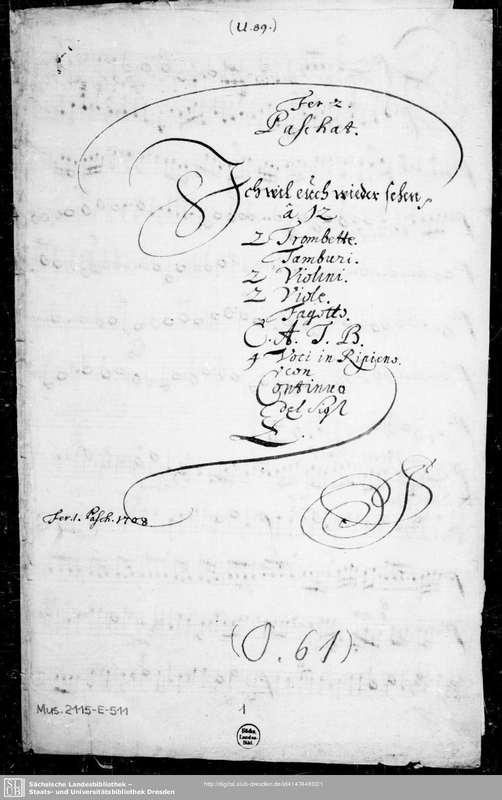 (U.89.)
Fer. 2.
Paschat.
Ich wil euch wieder sehen
â 12
2 Trombette.
Tamburi.
2 Violini.
2 Viole.
Fagotto.
C. A. T. B.
4 Voci in Ripieno.
con
Continuo
del Sigr
Z.
Fer. 1. Pasch. 1708
(O. 61)
Mus. 2115-E-511
1
Sächs.
Landes-
Bibl.
Sächsische Landesbibliothek –
Staats- und Universitätsbibliothek Dresden
http://digital.slub-dresden.de/id414744802/1